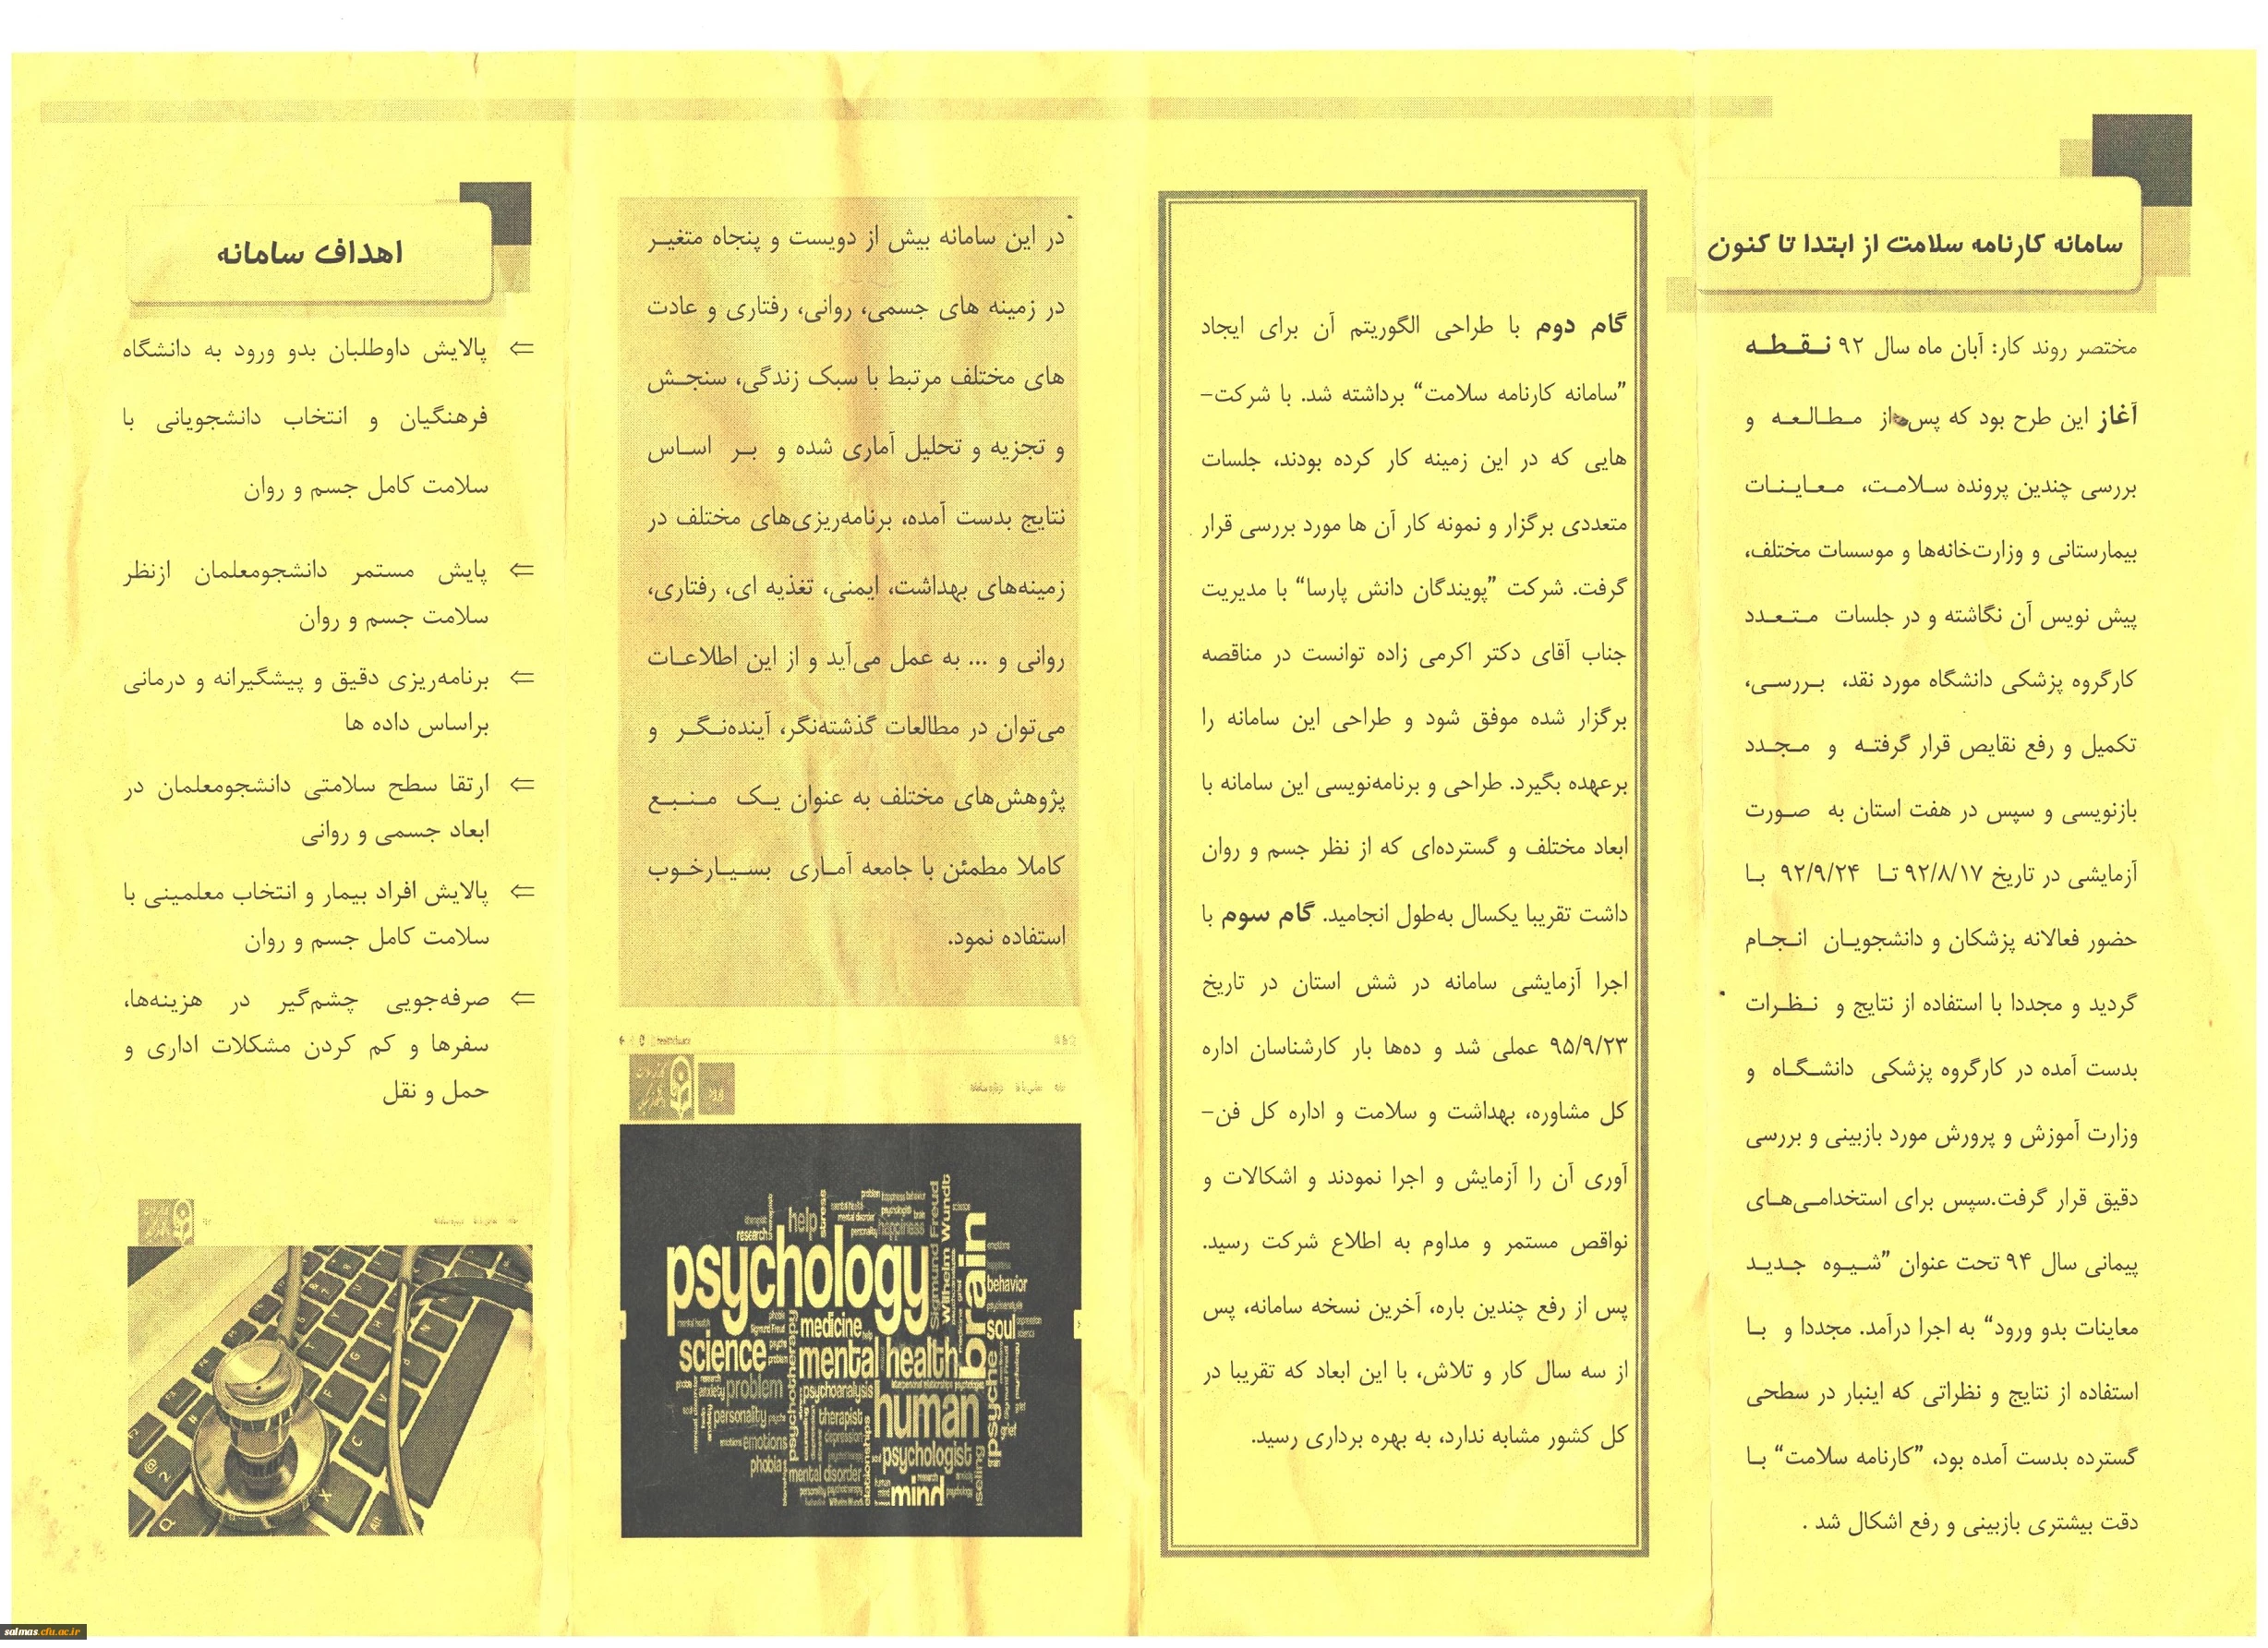 سامانه کارنامه سلامت از ابتدا تا کنون
مختصر روند کار: آبان ماه سال ۹۲ نقطه
آغاز این طرح بود که پس از مطالعه و
بررسی چندین پرونده سلامت، معاینات
بیمارستانی و وزارت‌خانه‌ها و موسسات مختلف،
پیش نویس آن نگاشته و در جلسات متعدد
کارگروه پزشکی دانشگاه مورد نقد، بررسی،
تکمیل و رفع نقایص قرار گرفته و مجدد
بازنویسی و سپس در هفت استان به صورت
آزمایشی در تاریخ ۹۲/۸/۱۷ تا ۹۲/۹/۲۴ با
حضور فعالانه پزشکان و دانشجویان انجام
گردید و مجددا با استفاده از نتایج و نظرات
بدست آمده در کارگروه پزشکی دانشگاه و
وزارت آموزش و پرورش مورد بازبینی و بررسی
دقیق قرار گرفت.سپس برای استخدامی‌های
پیمانی سال ۹۴ تحت عنوان ”شیوه جدید
معاینات بدو ورود“ به اجرا درآمد. مجددا و با
استفاده از نتایج و نظراتی که اینبار در سطحی
گسترده بدست آمده بود، ”کارنامه سلامت“ با
دقت بیشتری بازبینی و رفع اشکال شد .
گام دوم با طراحی الگوریتم آن برای ایجاد
”سامانه کارنامه سلامت“ برداشته شد. با شرکت-
هایی که در این زمینه کار کرده بودند، جلسات
متعددی برگزار و نمونه کار آن ها مورد بررسی قرار
گرفت. شرکت ”پویندگان دانش پارسا“ با مدیریت
جناب آقای دکتر اکرمی زاده توانست در مناقصه
برگزار شده موفق شود و طراحی این سامانه را
برعهده بگیرد. طراحی و برنامه‌نویسی این سامانه با
ابعاد مختلف و گسترده‌ای که از نظر جسم و روان
داشت تقریبا یکسال به‌طول انجامید. گام سوم با
اجرا آزمایشی سامانه در شش استان در تاریخ
۹۵/۹/۲۳ عملی شد و ده‌ها بار کارشناسان اداره
کل مشاوره، بهداشت و سلامت و اداره کل فن-
آوری آن را آزمایش و اجرا نمودند و اشکالات و
نواقص مستمر و مداوم به اطلاع شرکت رسید.
پس از رفع چندین باره، آخرین نسخه سامانه، پس
از سه سال کار و تلاش، با این ابعاد که تقریبا در
کل کشور مشابه ندارد، به بهره برداری رسید.
در این سامانه بیش از دویست و پنجاه متغیر
در زمینه های جسمی، روانی، رفتاری و عادت
های مختلف مرتبط با سبک زندگی، سنجش
و تجزیه و تحلیل آماری شده و بر اساس
نتایج بدست آمده، برنامه‌ریزی‌های مختلف در
زمینه‌های بهداشت، ایمنی، تغذیه ای، رفتاری،
روانی و ... به عمل می‌آید و از این اطلاعات
می‌توان در مطالعات گذشته‌نگر، آینده‌نگر و
پژوهش‌های مختلف به عنوان یک منبع
کاملا مطمئن با جامعه آماری بسیارخوب
استفاده نمود.
help
stress
happiness
research
psychology
Sigmund Freud
Wilhelm Wundt
brain
behavior
medicine
soul
science
mental health
problem
psychoanalysis
psychotherapy
human
psyche
personality
therapist
emotions
psychologist
phobia
mental disorder
mind
grief
anxiety
اهداف سامانه
⇐ پالایش داوطلبان بدو ورود به دانشگاه
فرهنگیان و انتخاب دانشجویانی با
سلامت کامل جسم و روان
⇐ پایش مستمر دانشجومعلمان ازنظر
سلامت جسم و روان
⇐ برنامه‌ریزی دقیق و پیشگیرانه و درمانی
براساس داده ها
⇐ ارتقا سطح سلامتی دانشجومعلمان در
ابعاد جسمی و روانی
⇐ پالایش افراد بیمار و انتخاب معلمینی با
سلامت کامل جسم و روان
⇐ صرفه‌جویی چشم‌گیر در هزینه‌ها،
سفرها و کم کردن مشکلات اداری و
حمل و نقل
salmas.cfu.ac.ir